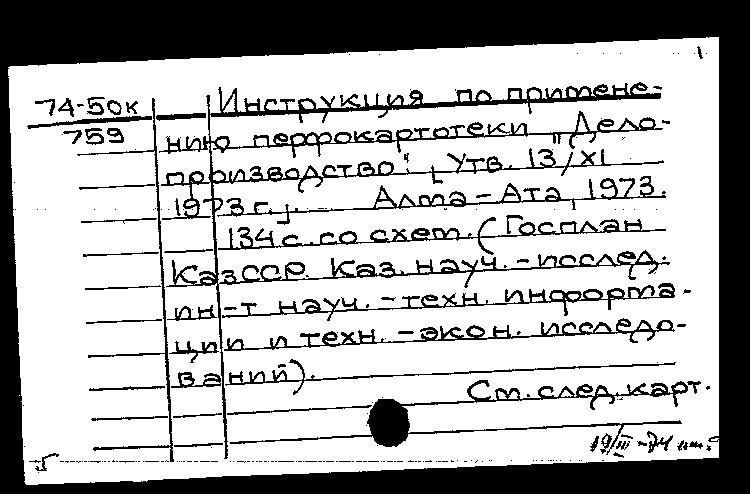 74-50к Инструкция по примене-
759 нию перфокартотеки „Дело-
производство". [Утв. 13/XI
1973 г.]. Алма-Ата, 1973.
134 с. со схем. (Госплан
КазССР. Каз. науч.-исслед.
ин-т науч.-техн. информа-
ции и техн.-экон. исследо-
ваний).
См. след. карт.
19/III-74